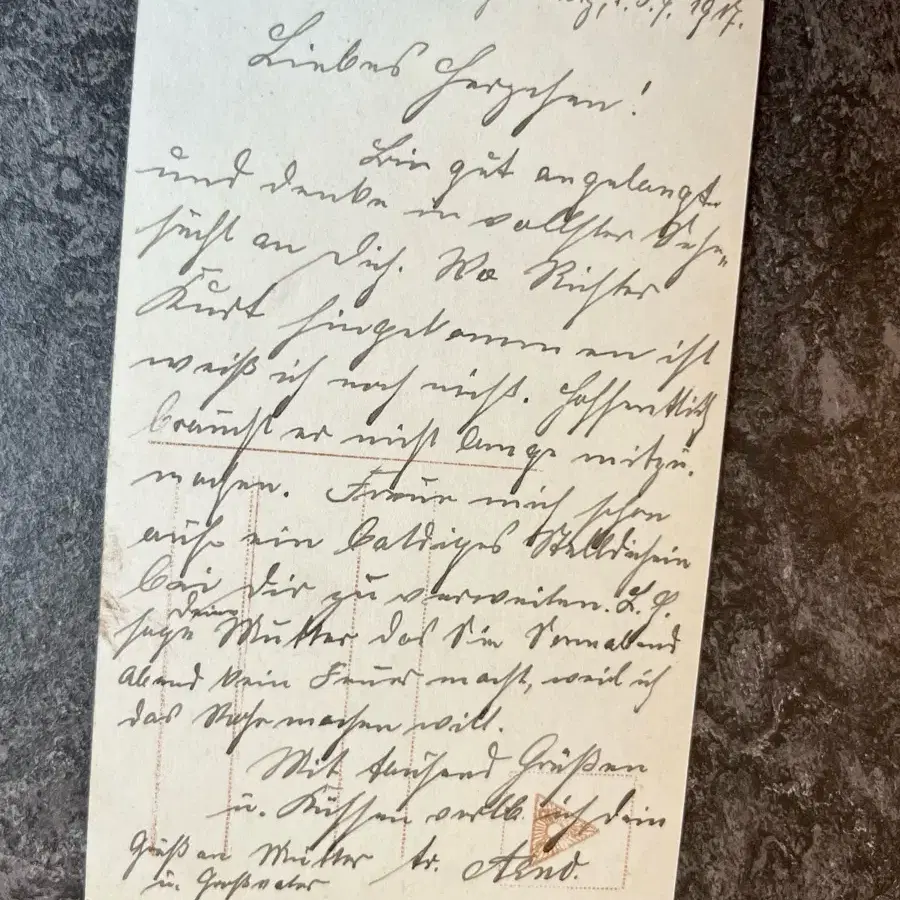 1917.
Liebes Herzchen!
Bin gut angelangt
und denke in vollster Sehn=
sucht an Dich. Wo Richter
Kurt hingekommen ist
weiß ich noch nicht. Hoffentlich
braucht er nicht lange mitzu-
machen. Freue mich schon
auf ein baldiges Stelldichein
bei dir zu verweilen. L. H.
sage deine Mutter das Sie Sonnabend
abend kein Feuer macht, weil ich
das machen will.
Mit tausend Grüßen
u. Küssen verlb. ich dein
tr.
Gruß an Mutter
u. Großvater